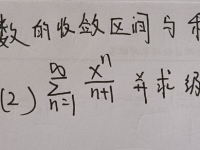 数的收敛区间与和
(2) \sum_{n=1}^{\infty} \frac{x^n}{n+1} 并求级